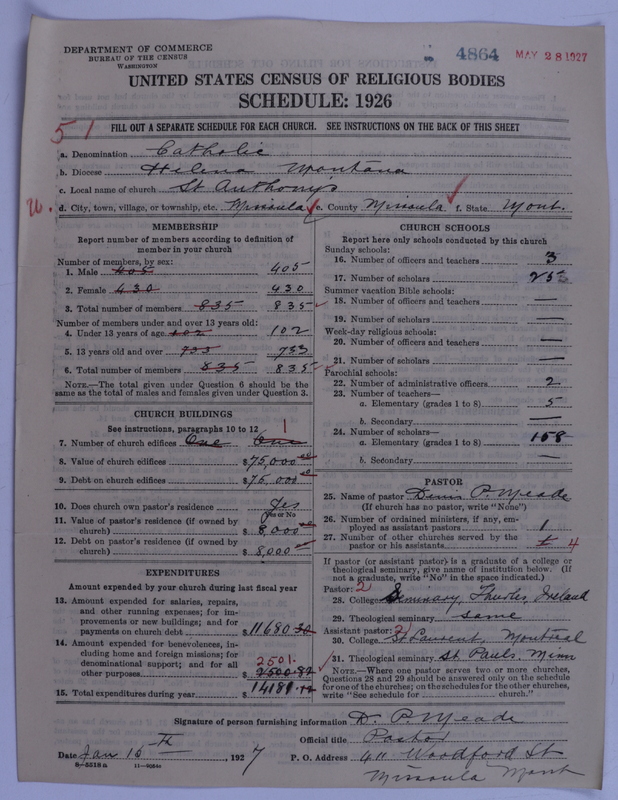 DEPARTMENT OF COMMERCE
BUREAU OF THE CENSUS
WASHINGTON
4864 MAY 28 1927
UNITED STATES CENSUS OF RELIGIOUS BODIES
SCHEDULE: 1926
51
FILL OUT A SEPARATE SCHEDULE FOR EACH CHURCH. SEE INSTRUCTIONS ON THE BACK OF THIS SHEET
a. Denomination Catholic
b. Diocese Helena Montana
c. Local name of church St Anthony's
d. City, town, village, or township, etc. Missoula e. County Missoula f. State Mont.
MEMBERSHIP
Report number of members according to definition of
member in your church
Number of members, by sex:
1. Male 405 405
2. Female 430 430
3. Total number of members 835 835
Number of members under and over 13 years old:
4. Under 13 years of age 102 102
5. 13 years old and over 733 733
6. Total number of members 835 835
NOTE.—The total given under Question 6 should be the
same as the total of males and females given under Question 3.
CHURCH BUILDINGS
See instructions, paragraphs 10 to 12
1
7. Number of church edifices One One
8. Value of church edifices $75,000
9. Debt on church edifices $75,000
10. Does church own pastor's residence Yes
Yes or No
11. Value of pastor's residence (if owned by
church) $8,000
12. Debt on pastor's residence (if owned by
church) $8,000
EXPENDITURES
Amount expended by your church during last fiscal year
13. Amount expended for salaries, repairs,
and other running expenses; for im-
provements or new buildings; and for
payments on church debt $11680.30
14. Amount expended for benevolences, in-
cluding home and foreign missions; for
denominational support; and for all
other purposes 2501. 2500.82
15. Total expenditures during year $14181.12
CHURCH SCHOOLS
Report here only schools conducted by this church
Sunday schools:
16. Number of officers and teachers 3
17. Number of scholars 255
Summer vacation Bible schools:
18. Number of officers and teachers —
19. Number of scholars —
Week-day religious schools:
20. Number of officers and teachers —
21. Number of scholars —
Parochial schools:
22. Number of administrative officers 2
23. Number of teachers—
a. Elementary (grades 1 to 8) 5
b. Secondary —
24. Number of scholars—
a. Elementary (grades 1 to 8) 158
b. Secondary —
PASTOR
25. Name of pastor Denis P. Meade
(If church has no pastor, write "None")
26. Number of ordained ministers, if any, em-
ployed as assistant pastors 1
27. Number of other churches served by the
pastor or his assistants 4
If pastor (or assistant pastor) is a graduate of a college or
theological seminary, give name of institution below. (If
not a graduate, write "No" in the space indicated.)
Pastor: 2
28. College Seminary, Thurles, Ireland
29. Theological seminary same
Assistant pastor: 2
30. College St Laurent, Montreal
31. Theological seminary St Pauls, Minn
NOTE.—Where one pastor serves two or more churches,
Questions 28 and 29 should be answered only on the schedule
for one of the churches; on the schedules for the other churches,
write "See schedule for church."
Signature of person furnishing information D. P. Meade
Official title Pastor
Date Jan 15 Th, 1927 P. O. Address 411 Woodford St
8-5518a 11-9064
Missoula Mont